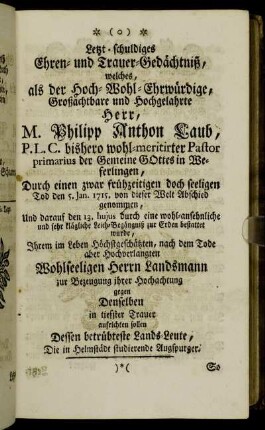 * (o) *
Letzt-schuldiges
Ehren- und Trauer-Gedächtniß,
welches,
als der Hoch-Wohl-Ehrwürdige,
Großachtbare und Hochgelahrte
Herr,
M. Philipp Anthon Laub,
P. L. C. bishero wohl-meritirter Pastor
primarius der Gemeine GOttes in We-
ferlingen,
Durch einen zwar frühzeitigen doch seeligen
Tod den 5. Jan. 1715. von dieser Welt Abschied
genommen,
Und darauf den 13. hujus durch eine wohl-ansehnliche
und sehr klägliche Leich-Begängniß zur Erden bestattet
wurde,
Ihrem im Leben Höchstgeschätzten, nach dem Tode
aber Hochverlangten
Wohlseeligen Herrn Landsmann
zur Bezeugung ihrer Hochachtung
gegen
Denselben
in tieffster Trauer
aufrichten sollen
Dessen betrübteste Lands-Leute,
Die in Helmstädt studierende Augspurger.
)*( So